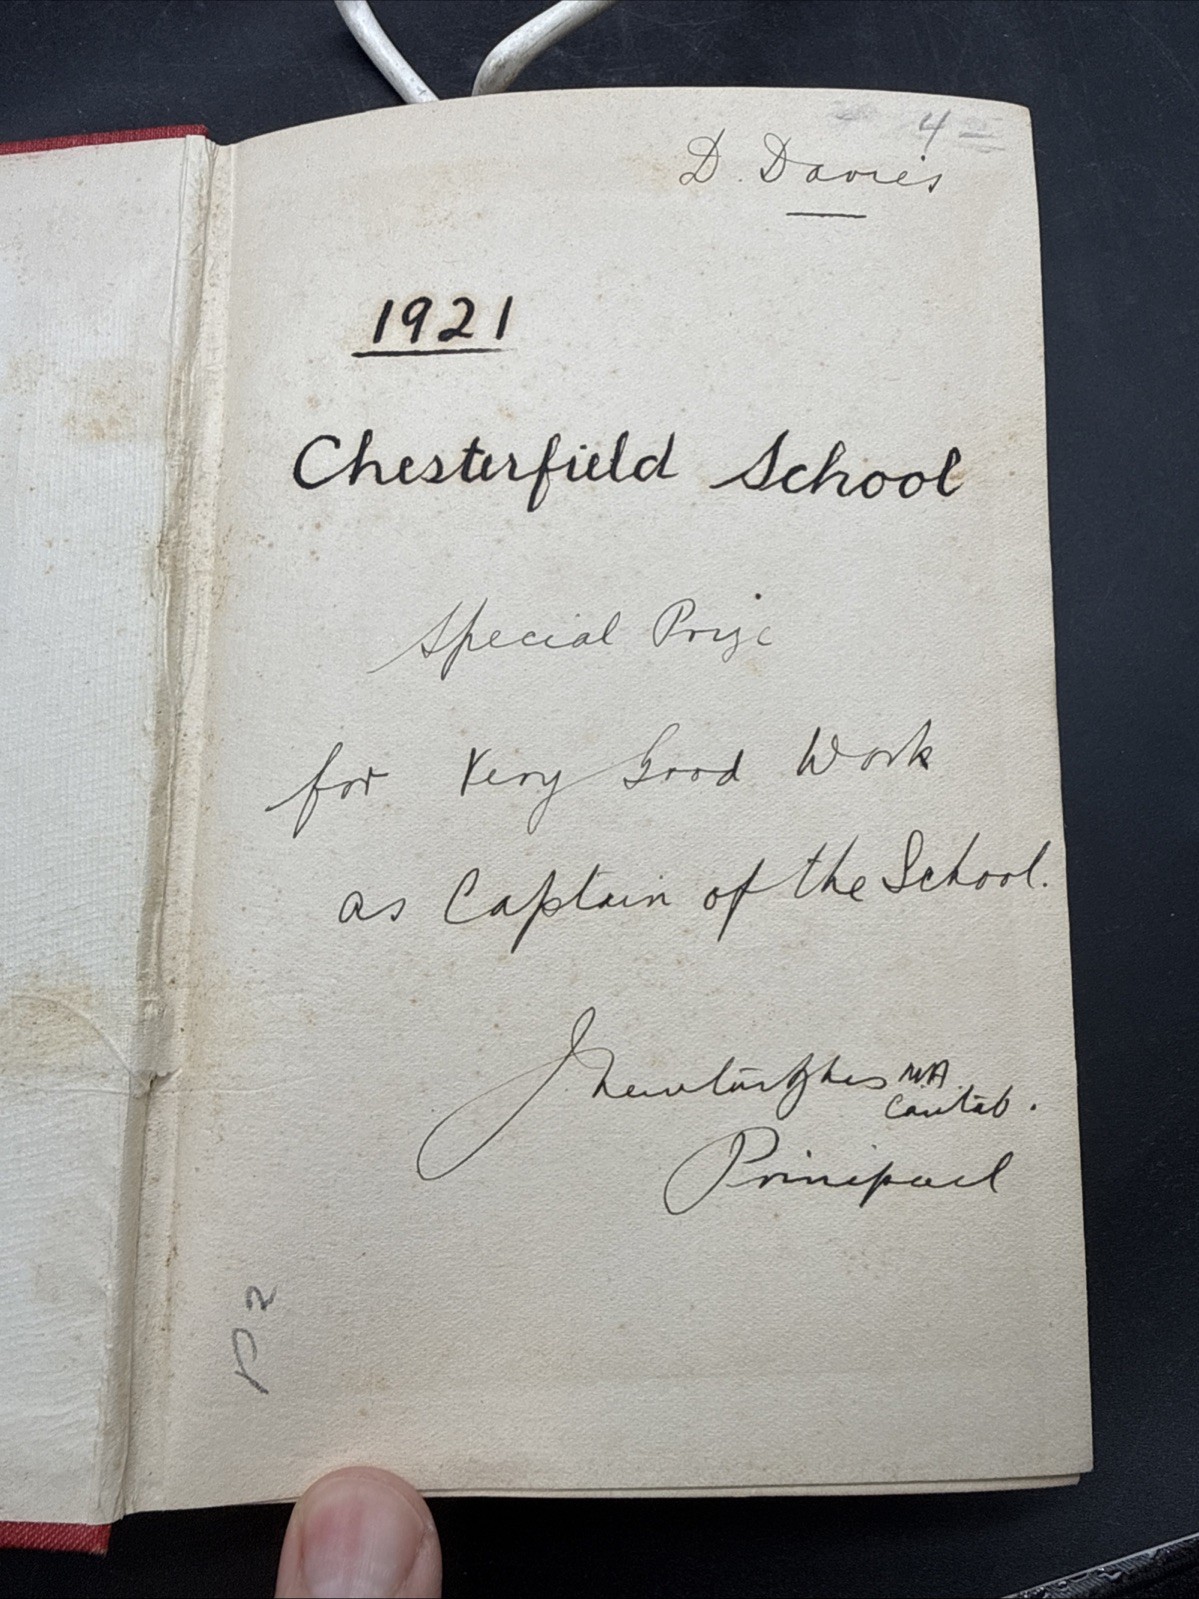 4
D. Davies
1921
Chesterfield School
Special Prize
for Very Good Work
as Captain of the School.
J. MA
Cantab.
Principal
P2